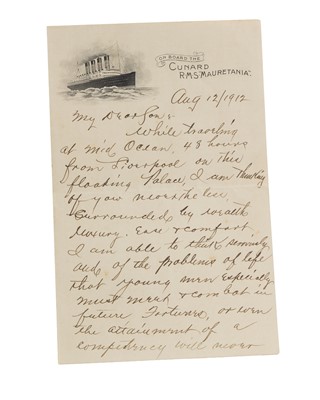 ON BOARD THE
CUNARD
R.M.S. "MAURETANIA".
Aug 12/1912
My Dear Son:
While traveling
at Mid Ocean, 48 hours
from Liverpool on this
floating Palace, I am thinking
of you nevertheless
Surrounded by wealth
luxury, Ease & comfort
I am able to think seriously
and of the problems of life
that young men Especially
must meet & combat in
future Fortunes, or even
the attainment of a
competency will never